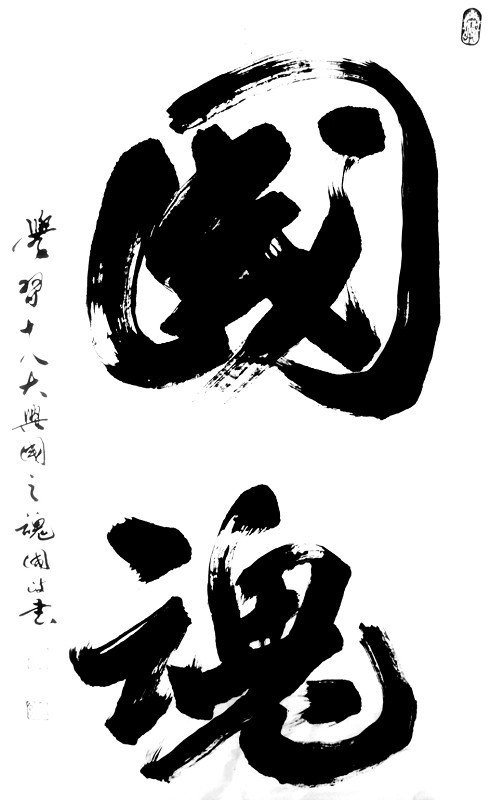 國魂
學習十八大興國之魂國政書